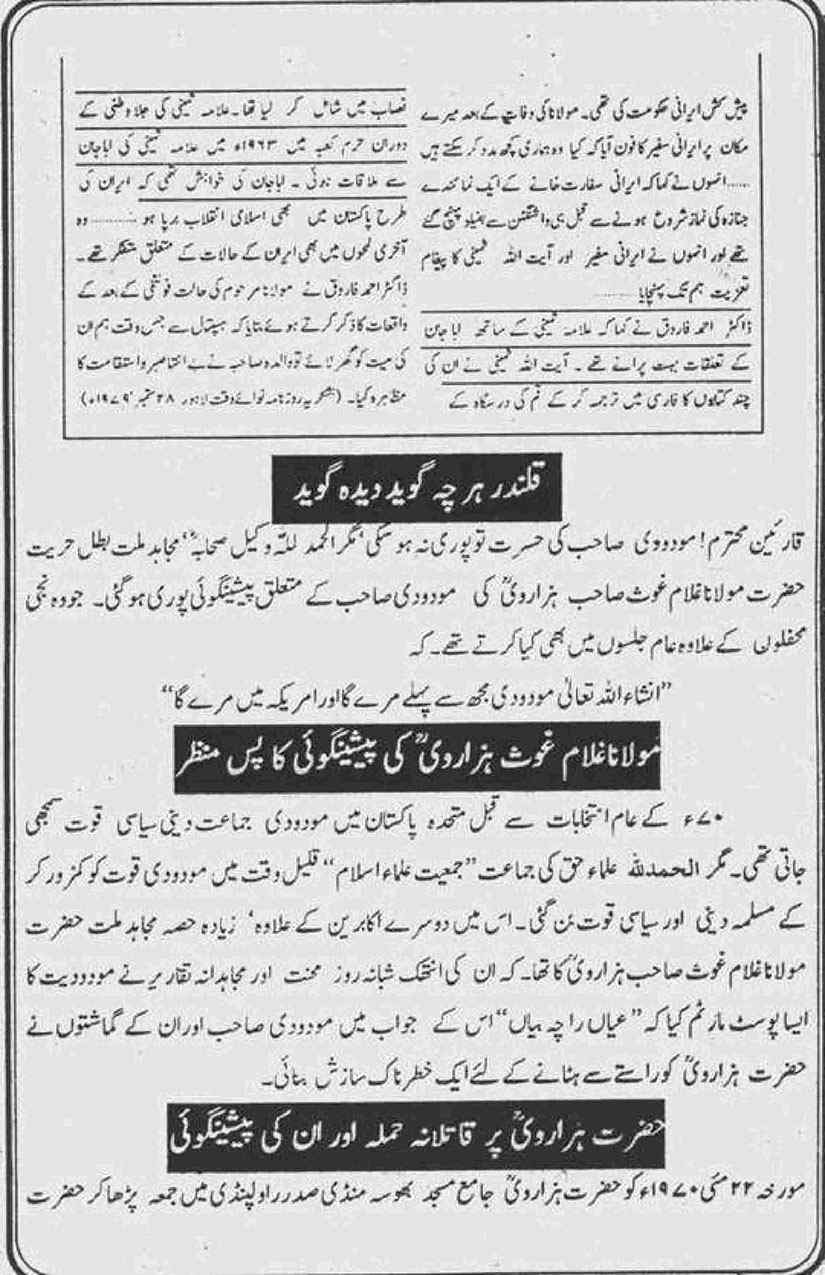 پیش کش ایرانی حکومت کی تھی۔ مولانا کی وفات کے بعد میرے
مکان پر ایرانی سفیر کا فون آیا کہ کیا وہ ہماری کچھ مدد کر سکتے ہیں
......انھوں نے کہا کہ ایرانی سفارت خانے کے ایک نمائندے
جنازہ کی نماز شروع ہونے سے قبل ہی واشنگٹن سے بفیلو پہنچ گئے
تھے اور انھوں نے ایرانی سفیر اور آیت اللہ خمینی کا پیغام
تعزیت ہم تک پہنچایا............
ڈاکٹر احمد فاروق نے کہا کہ علامہ خمینی کے ساتھ اباجان
کے تعلقات بہت پرانے تھے ۔ آیت اللہ خمینی نے ان کی
چند کتابوں کا فارسی میں ترجمہ کر کے قم کی درسگاہ کے
نصاب میں شامل کر لیا تھا۔ علامہ خمینی کی جلاوطنی کے
دوران حرم کعبہ میں ۱۹۶۳ء میں علامہ خمینی کی اباجان
سے ملاقات ہوئی ۔ اباجان کی خواہش تھی کہ ایران کی
طرح پاکستان میں بھی اسلامی انقلاب برپا ہو ............ وہ
آخری لمحوں میں بھی ایران کے حالات کے متعلق متفکر تھے ۔
ڈاکٹر احمد فاروق نے مولانا مرحوم کی حالت فوتگی کے بعد کے
واقعات کا ذکر کرتے ہوئے بتایا کہ ہسپتال سے جس وقت ہم ان
کی میت کو گھر لائے تو والدہ صاحبہ نے بے انتہا صبر و استقامت کا
مظاہرہ کیا۔ (بشکریہ روزنامہ نوائے وقت لاہور ۲۸ ستمبر ۱۹۷۹ء)
قلندر ہر چہ گوید دیدہ گوید
قارئین محترم! مودودی صاحب کی حسرت تو پوری نہ ہو سکی‘ مگر الحمد للہ وکیل صحابہؓ‘ مجاہد ملت بطل حریت
حضرت مولانا غلام غوث صاحب ہزارویؒ کی مودودی صاحب کے متعلق پیشینگوئی پوری ہو گئی۔ جو وہ نجی
محفلوں کے علاوہ عام جلسوں میں بھی کیا کرتے تھے۔ کہ
”انشاء اللہ تعالیٰ مودودی مجھ سے پہلے مرے گا اور امریکہ میں مرے گا“
مولانا غلام غوث ہزارویؒ کی پیشینگوئی کا پس منظر
۷۰ء کے عام انتخابات سے قبل متحدہ پاکستان میں مودودی جماعت دینی سیاسی قوت سمجھی
جاتی تھی۔ مگر الحمد للہ علماء حق کی جماعت ”جمعیت علماء اسلام“ قلیل وقت میں مودودی قوت کو کمزور کر
کے مسلمہ دینی اور سیاسی قوت بن گئی۔ اس میں دوسرے اکابرین کے علاوہ‘ زیادہ حصہ مجاہد ملت حضرت
مولانا غلام غوث صاحب ہزارویؒ کا تھا۔ کہ ان کی انتھک شبانہ روز محنت اور مجاہدانہ تقاریر نے مودودیت کا
ایسا پوسٹ مارٹم کیا کہ ”عیاں را چہ بیاں“ اس کے جواب میں مودودی صاحب اور ان کے گماشتوں نے
حضرت ہزارویؒ کو راستے سے ہٹانے کے لئے ایک خطرناک سازش بنائی۔
حضرت ہزارویؒ پر قاتلانہ حملہ اور ان کی پیشینگوئی
مورخہ ۲۲ مئی ۱۹۷۰ء کو حضرت ہزارویؒ جامع مسجد بھوسہ منڈی صدر راولپنڈی میں جمعہ پڑھا کر حضرت